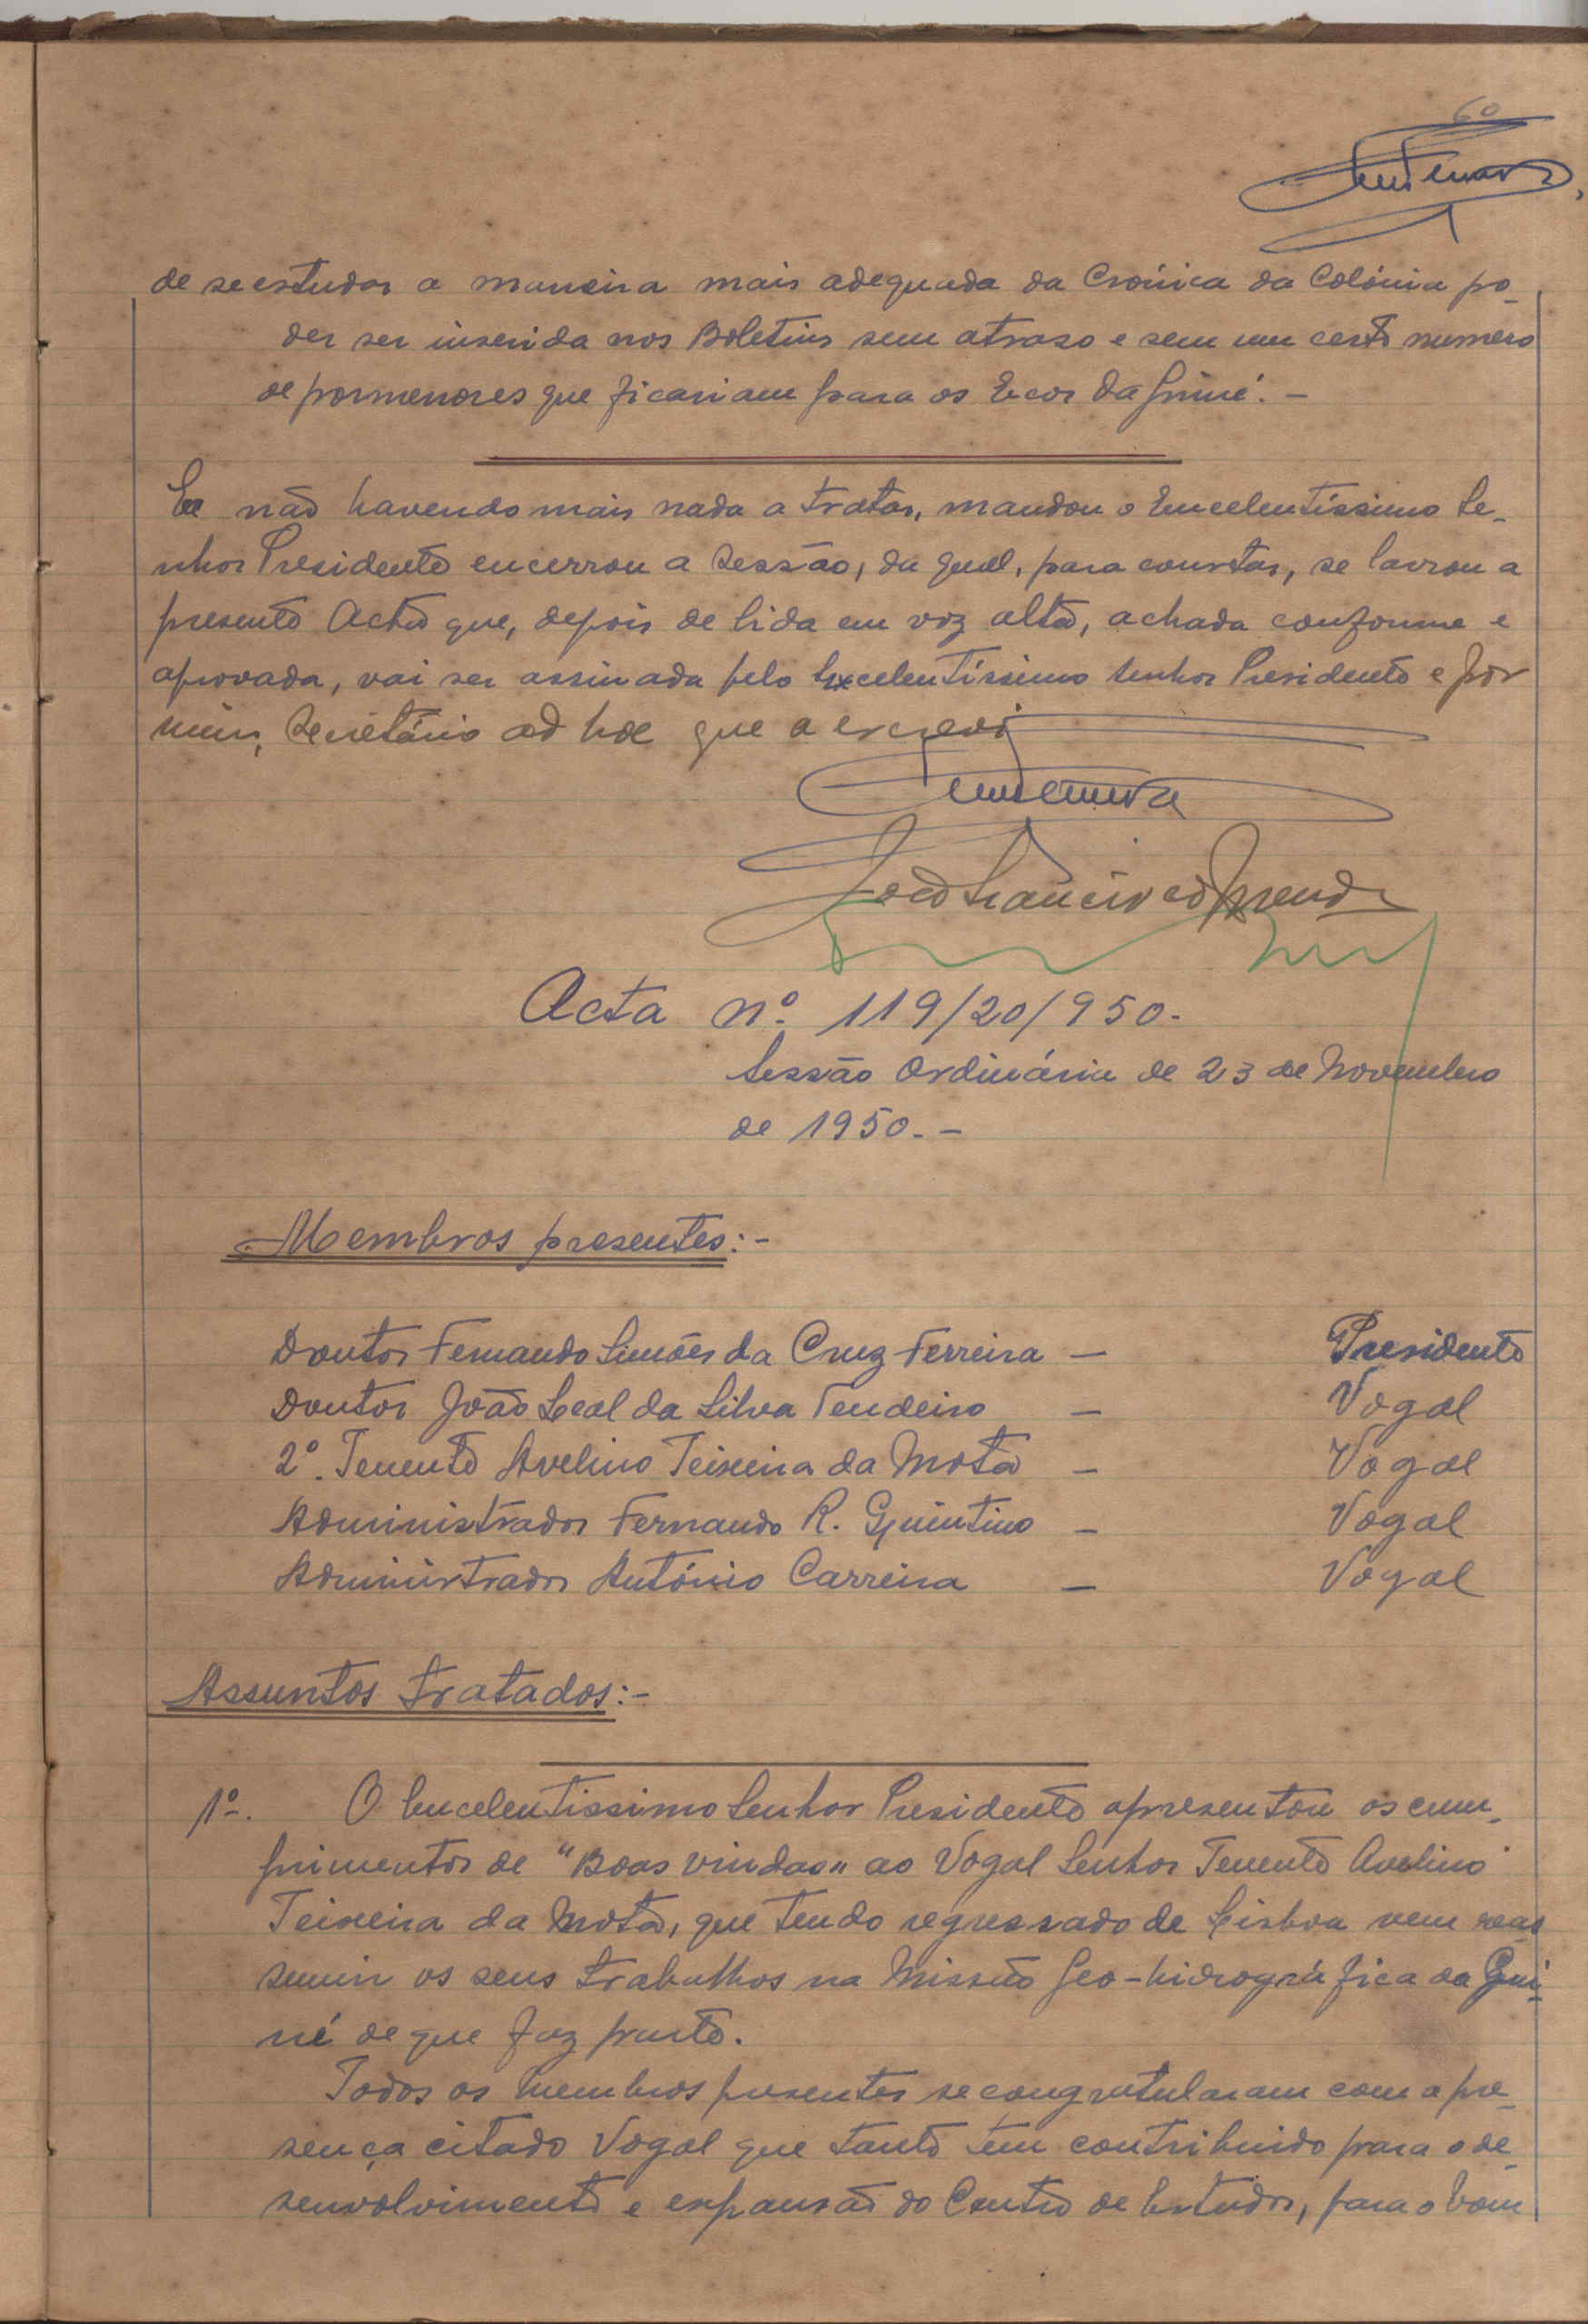 60
de se estudar a maneira mais adequada da Crónica da Colónia po-
der ser inserida nos Boletins sem atraso e sem um certo numero
de pormenores que ficariam para os Ecos da Guiné. -
E não havendo mais nada a tratar, mandou o Excelentíssimo Se-
nhor Presidente encerrou a Sessão, da qual, para constar, se lavrou a
presente Acta que, depois de lida em voz alta, achada conforme e
aprovada, vai ser assinada pelo Excelentíssimo Senhor Presidente e por
mim, Secretário ad hoc que a escrevi
Acta nº. 119/20/950.-
Sessão Ordinária de 23 de Novembro
de 1950. -
Membros presentes:-
Doutor Fernando Simões da Cruz Ferreira — Presidente
Doutor João Leal da Silva Tendeiro — Vogal
2º. Tenente Avelino Teixeira da Mota — Vogal
Administrador Fernando R. Quintino — Vogal
Administrador António Carreira — Vogal
Assuntos tratados:-
1º. O Excelentissimo Senhor Presidente apresentou os cum-
primentos de "Boas vindas" ao Vogal Senhor Tenente Avelino
Teixeira da Mota, que tendo regressado de Lisboa vem reas
sumir os seus trabalhos na Missão Geo-hidrográfica da Gui-
né de que faz parte.
Todos os membros presentes se congratularam com a pre-
sença citado Vogal que tanto tem contribuido para o de-
senvolvimento e expansão do Centro de Estudos, para o bom